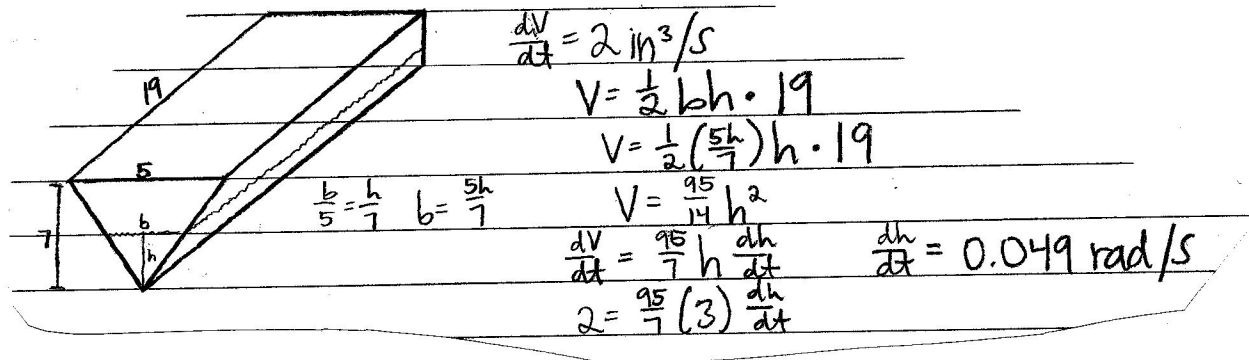 19
5
7
b
h
b/5 = h/7 b = 5h/7
dV/dt = 2 in³/s
V = 1/2 bh · 19
V = 1/2 (5h/7) h · 19
V = 95/14 h²
dV/dt = 95/7 h dh/dt
2 = 95/7 (3) dh/dt
dh/dt = 0.049 rad/s